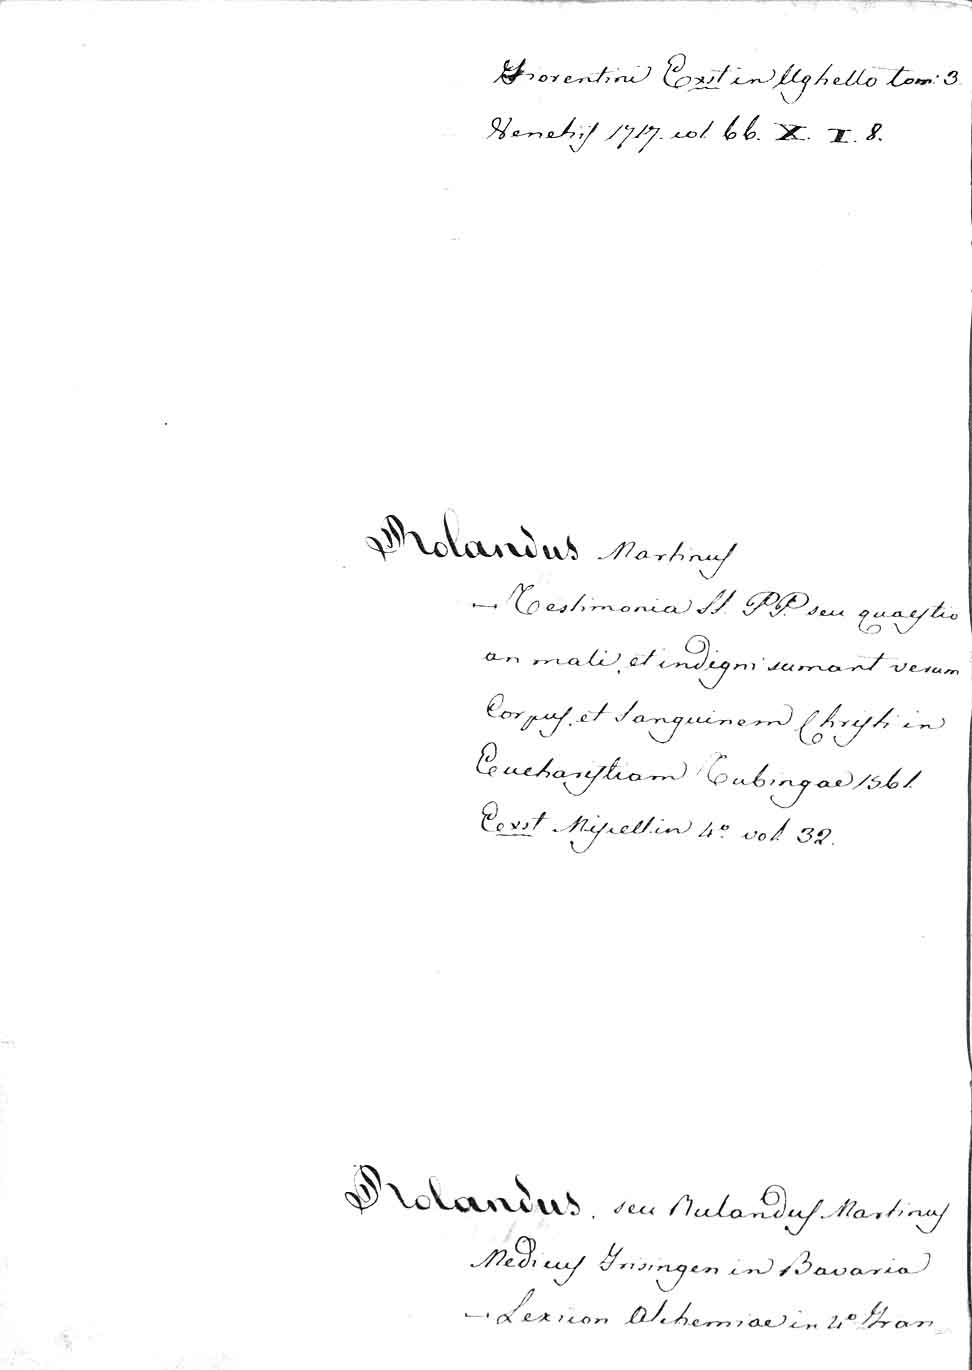 Fiorentini Exst in Ughello tom: 3.
Venetijs 1717. col. 66. X. I. 8.
Rolandus Martinus
— Testimonia SS. PP. seu quaestio
an mali, et indigni sumant verum
Corpus, et Sanguinem Christi in
Eucharistiam Tubingae 1561.
Eexst Miscell. in 4º. vol. 32.
Rolandus. seu Rulandus Martinus
Medicus Frisingen in Bavaria
— Lexicon Alchemiae in 4º Fran